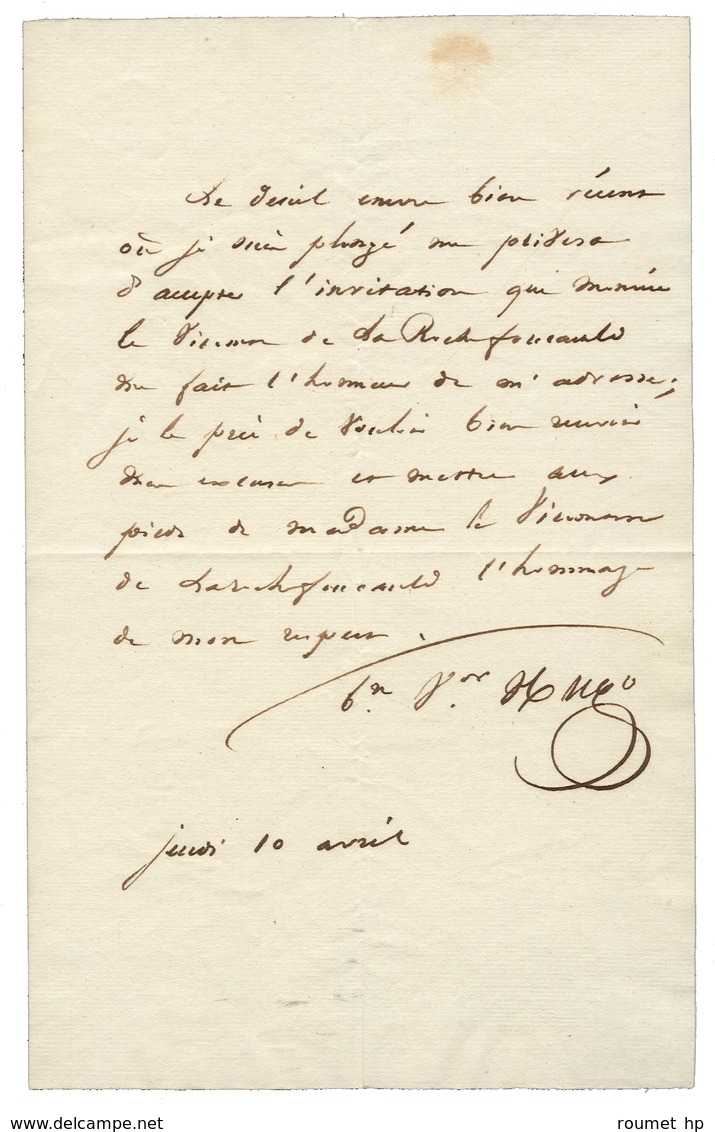 Le deuil encore bien récent
où je suis plongé me privera
d'accepter l'invitation que Monsieur
le Vicomte de La Rochefoucauld
me fait l'honneur de m'adresser;
je le prie de vouloir bien recevoir
mes excuses et mettre aux
pieds de Madame la Vicomtesse
de Larochefoucauld l'hommage
de mon respect.
Bn Vor Hugo
jeudi 10 avril
roumet hp